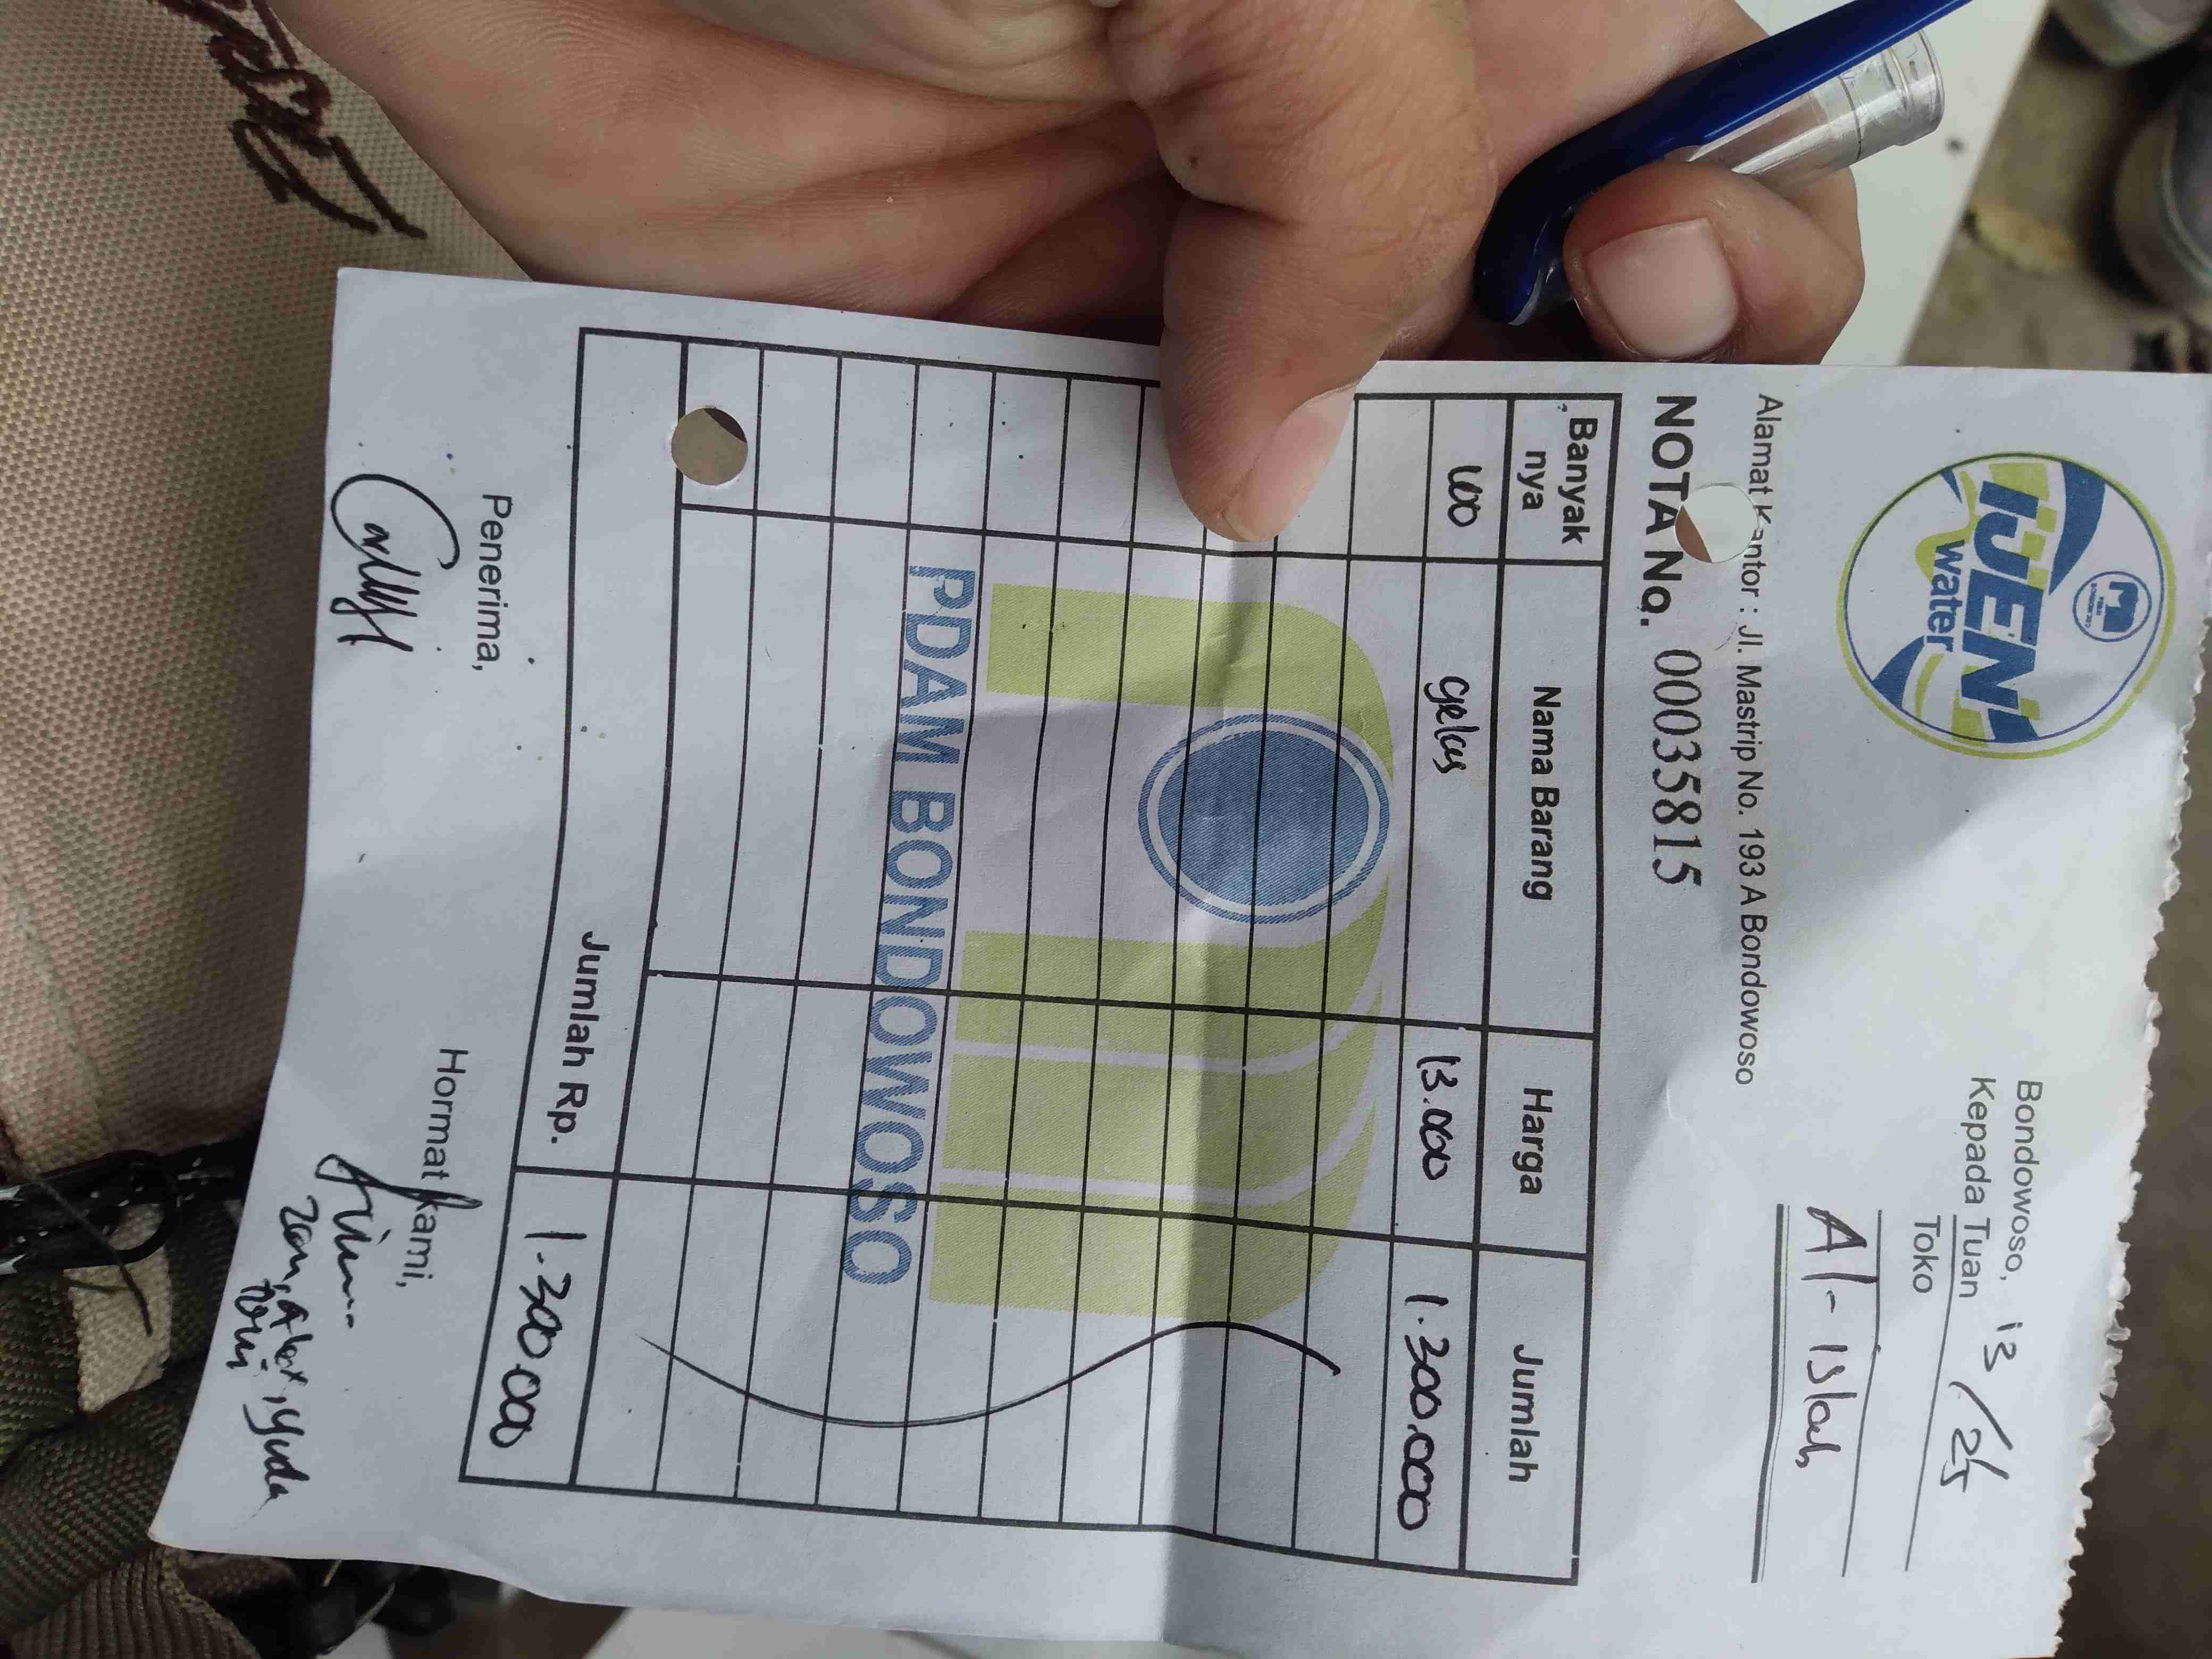 IJEN
water
Bondowoso, 13 / 25
Kepada Tuan
Toko
Al-Islah
Alamat Kantor : Jl. Mastrip No. 193 A Bondowoso
NOTA No. 00035815
Banyak nya Nama Barang Harga Jumlah
100 gelas 13.000 1.300.000
PDAM BONDOWOSO
Jumlah Rp. 1.300.000
Penerima, Hormat kami,
zan, alex, yuda